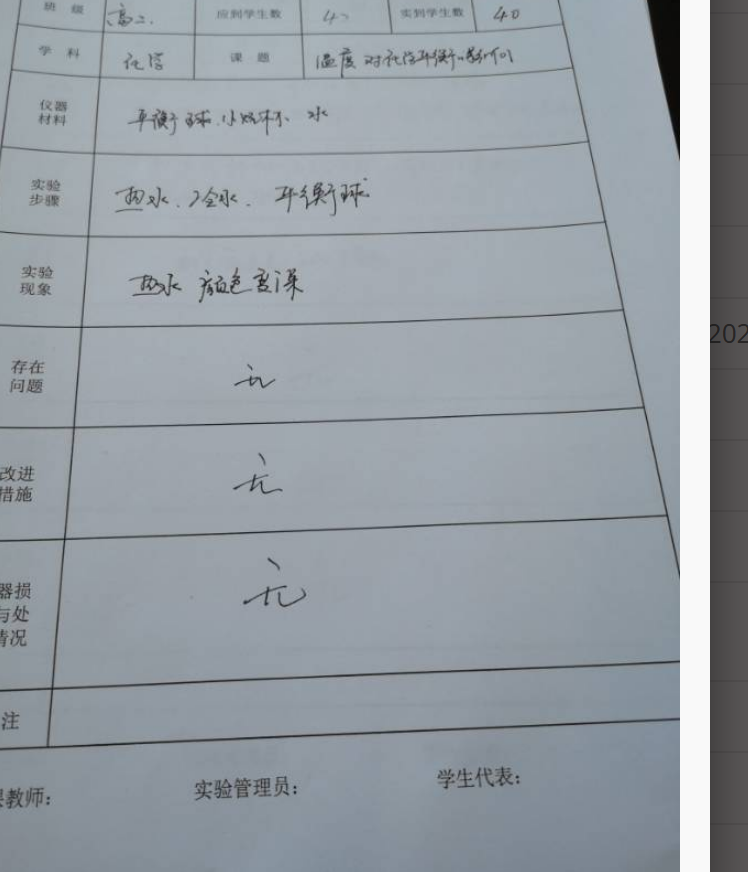 班 级 高二. 应到学生数 40 实到学生数 40
学 科 化学 课 题 温度对化学平衡的影响
仪器
材料
平衡球.小烧杯、水
实验
步骤
热水、冷水. 平衡球
实验
现象
热水 颜色变深
存在
问题
无
改进
措施
无
器损
与处
情况
无
注
教师:
实验管理员:
学生代表:
202